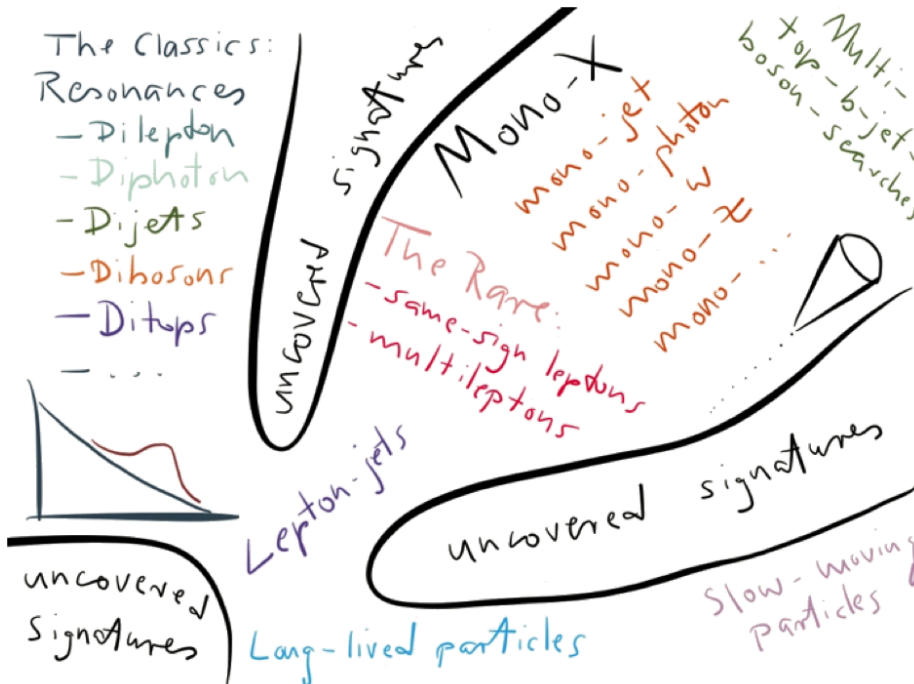 The Classics:
Resonances
- Dilepton
- Diphoton
- Dijets
- Dibosons
- Ditops
- ....
uncovered
signatures
Mono-X
mono-jet
mono-photon
mono-W
mono-Z
mono-...
Multi-
top-b-jet-
boson-searches
The Rare:
- same-sign leptons
- multileptons
Lepton-jets
uncovered signatures
uncovered
signatures
Long-lived particles
Slow-moving
particles